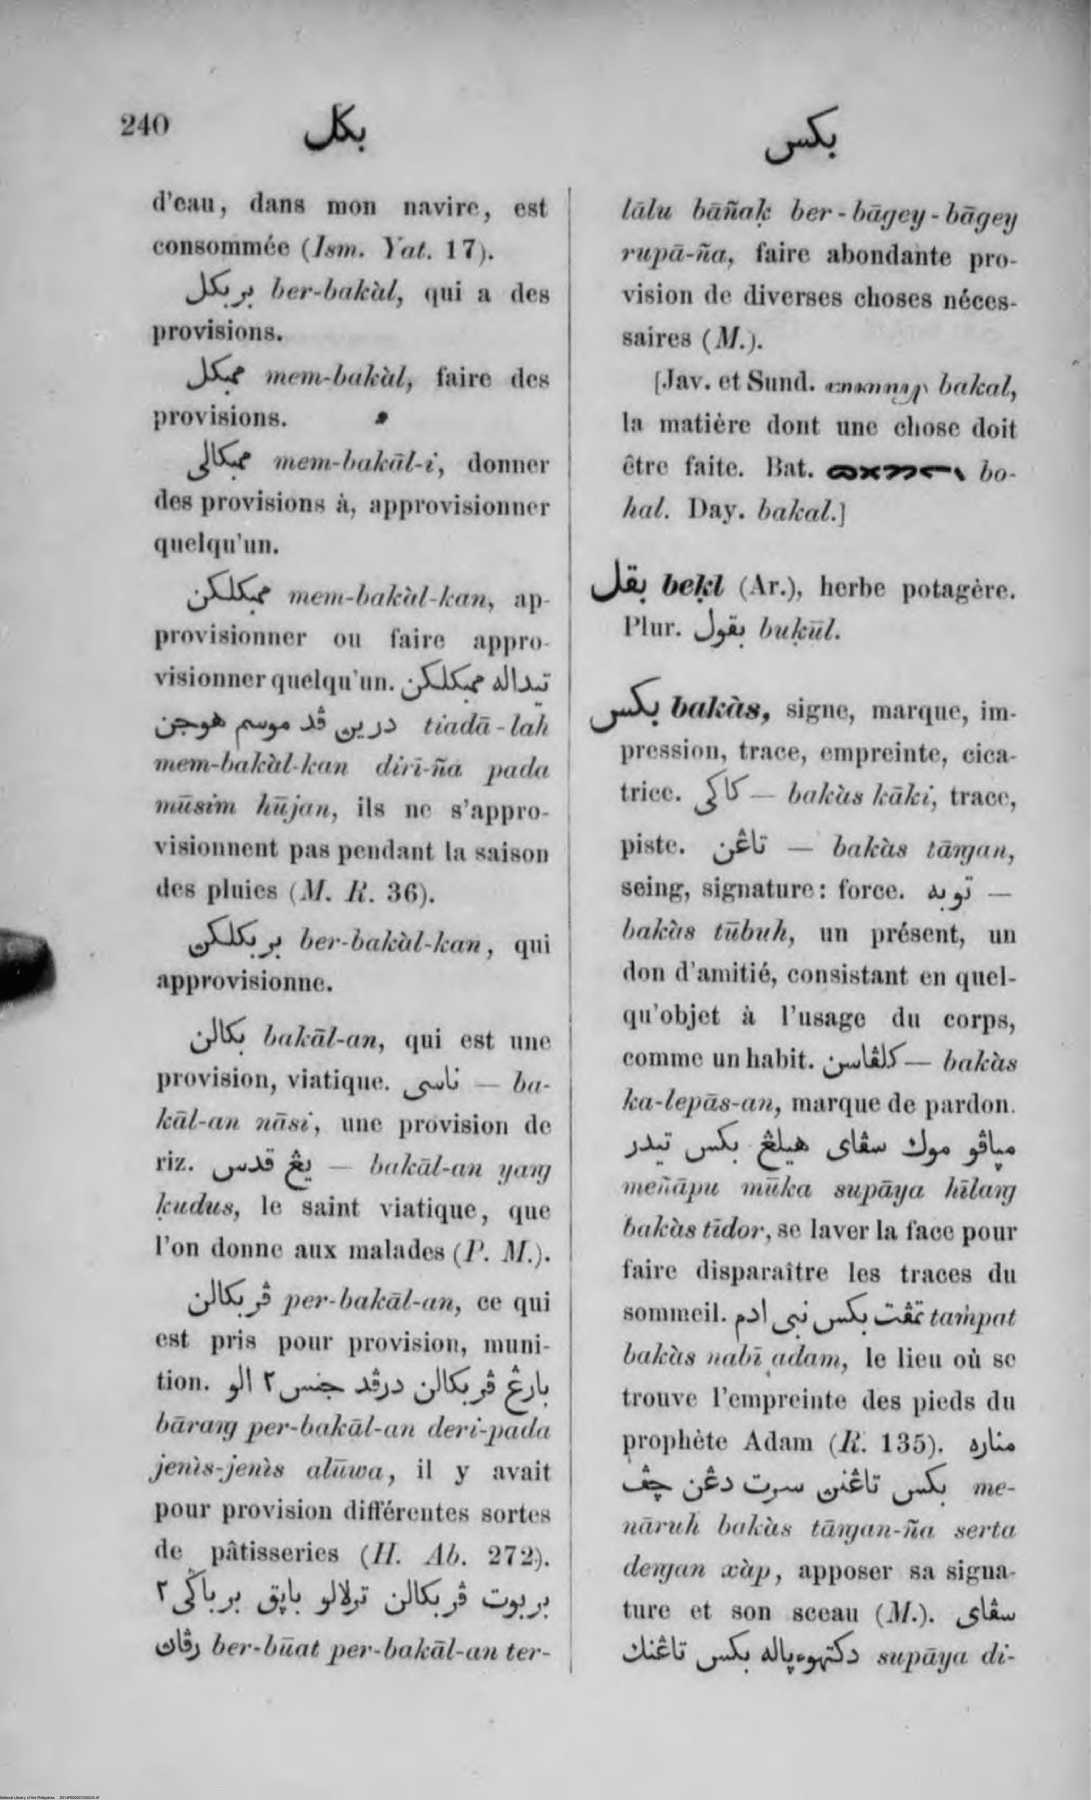 240
بكل
بكس
d'eau, dans mon navire, est
consommée (Ism. Yat. 17).
بربكل ber-bakàl, qui a des
provisions.
ممبكل mem-bakàl, faire des
provisions.
ممبكالى mem-bakāl-i, donner
des provisions à, approvisionner
quelqu'un.
ممبكلكن mem-bakàl-kan, ap-
provisionner ou faire appro-
visionner quelqu'un. تيداله ممبكلكن
درين ڤد موسم هوجن tiadā-lah
mem-bakàl-kan diri-ña pada
mūsim hūjan, ils ne s'appro-
visionnent pas pendant la saison
des pluies (M. R. 36).
بربكلكن ber-bakàl-kan, qui
approvisionne.
بكالن bakāl-an, qui est une
provision, viatique. ناسى — ba-
kāl-an nāsi, une provision de
riz. يڠ قدس — bakāl-an yaṅg
ḳudus, le saint viatique, que
l'on donne aux malades (P. M.).
ڤربكالن per-bakāl-an, ce qui
est pris pour provision, muni-
tion. بارڠ ڤربكالن درڤد جنس٢ الو
bāraṅg per-bakāl-an deri-pada
jenìs-jenìs alūwa, il y avait
pour provision différentes sortes
de pâtisseries (H. Ab. 272).
بربوت ڤربكالن ترلالو باپق برباڬى٢
رڤاڽ ber-būat per-bakāl-an ter-
lālu bāñaḳ ber-bāgey-bāgey
rupā-ña, faire abondante pro-
vision de diverses choses néces-
saires (M.).
[Jav. et Sund. bakal,
la matière dont une chose doit
être faite. Bat. bo-
hal. Day. bakal.]
بقل beḳl (Ar.), herbe potagère.
Plur. بقول buḳūl.
بكس bakàs, signe, marque, im-
pression, trace, empreinte, cica-
trice. كاكى — bakàs kāki, trace,
piste. تاڠن — bakàs tāṅgan,
seing, signature: force. توبه —
bakàs tūbuh, un présent, un
don d'amitié, consistant en quel-
qu'objet à l'usage du corps,
comme un habit. كلڤاسن — bakàs
ka-lepās-an, marque de pardon.
مپاڤو موك سڤاى هيلڠ بكس تيدر
meñāpu mūka supāya hīlaṅg
bakàs tīdor, se laver la face pour
faire disparaître les traces du
sommeil. تمڤت بكس نبى ادم taṁpat
bakàs nabī adam, le lieu où se
trouve l'empreinte des pieds du
prophète Adam (R. 135). مناره
بكس تاڠنن سرت دڠن چڤ me-
nāruh bakàs tāṅgan-ña serta
deṅgan xàp, apposer sa signa-
ture et son sceau (M.). سڤاى
دكتهوءپاله بكس تاڠنك supāya di-